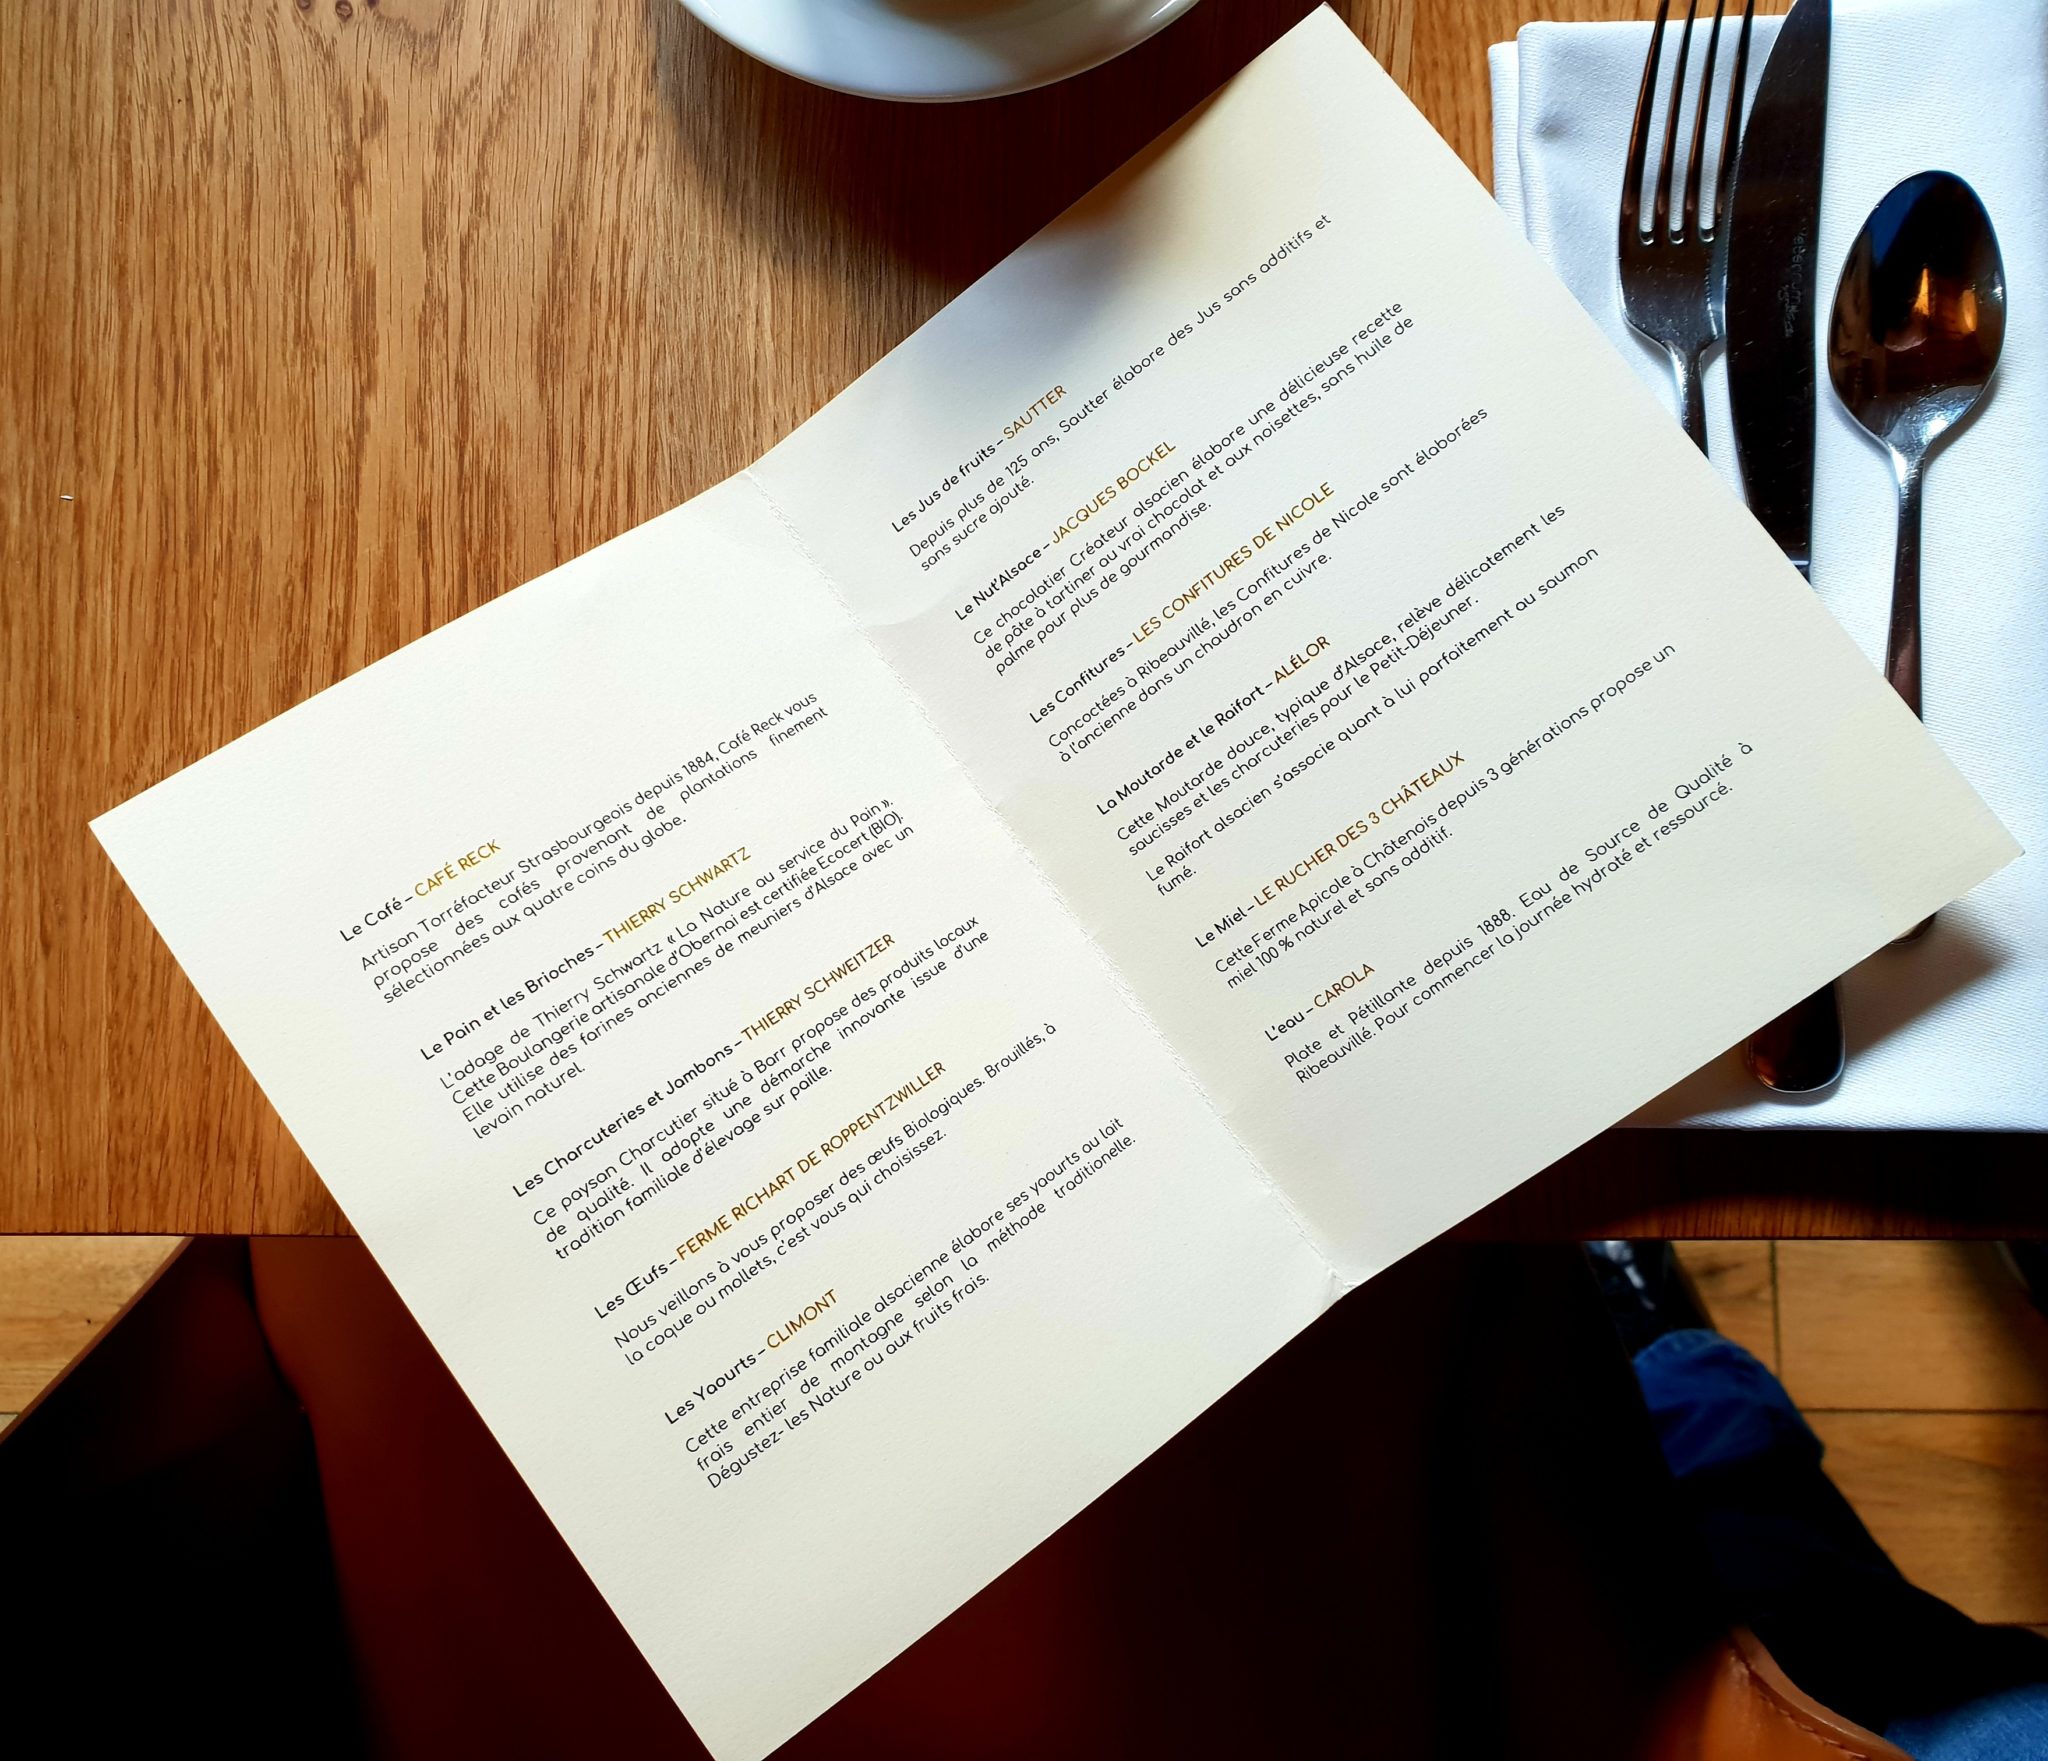 Le Café – CAFÉ RECK
Artisan Torréfacteur Strasbourgeois depuis 1884, Café Reck vous
propose des cafés provenant de plantations finement
sélectionnées aux quatre coins du globe.
Le Pain et les Brioches – THIERRY SCHWARTZ
L'adage de Thierry Schwartz « La Nature au service du Pain ».
Cette Boulangerie artisanale d'Obernai est certifiée Ecocert (BIO).
Elle utilise des farines anciennes de meuniers d'Alsace avec un
levain naturel.
Les Charcuteries et Jambons – THIERRY SCHWEITZER
Ce paysan Charcutier situé à Barr propose des produits locaux
de qualité. Il adopte une démarche innovante issue d'une
tradition familiale d'élevage sur paille.
Les Œufs – FERME RICHART DE ROPPENTZWILLER
Nous veillons à vous proposer des œufs Biologiques. Brouillés, à
la coque ou mollets, c'est vous qui choisissez.
Les Yaourts – CLIMONT
Cette entreprise familiale alsacienne élabore ses yaourts au lait
frais entier de montagne selon la méthode traditionelle.
Dégustez- les Nature ou aux fruits frais.
Les Jus de fruits – SAUTTER
Depuis plus de 125 ans, Sautter élabore des Jus sans additifs et
sans sucre ajouté.
Le Nut'Alsace – JACQUES BOCKEL
Ce chocolatier Créateur alsacien élabore une délicieuse recette
de pâte à tartiner au vrai chocolat et aux noisettes, sans huile de
palme pour plus de gourmandise.
Les Confitures – LES CONFITURES DE NICOLE
Concoctées à Ribeauvillé, les Confitures de Nicole sont élaborées
à l'ancienne dans un chaudron en cuivre.
La Moutarde et le Raifort – ALÉLOR
Cette Moutarde douce, typique d'Alsace, relève délicatement les
saucisses et les charcuteries pour le Petit-Déjeuner.
Le Raifort alsacien s'associe quant à lui parfaitement au saumon
fumé.
Le Miel – LE RUCHER DES 3 CHÂTEAUX
Cette Ferme Apicole à Châtenois depuis 3 générations propose un
miel 100 % naturel et sans additif.
L'eau – CAROLA
Plate et Pétillante depuis 1888. Eau de Source de Qualité à
Ribeauvillé. Pour commencer la journée hydraté et ressourcé.